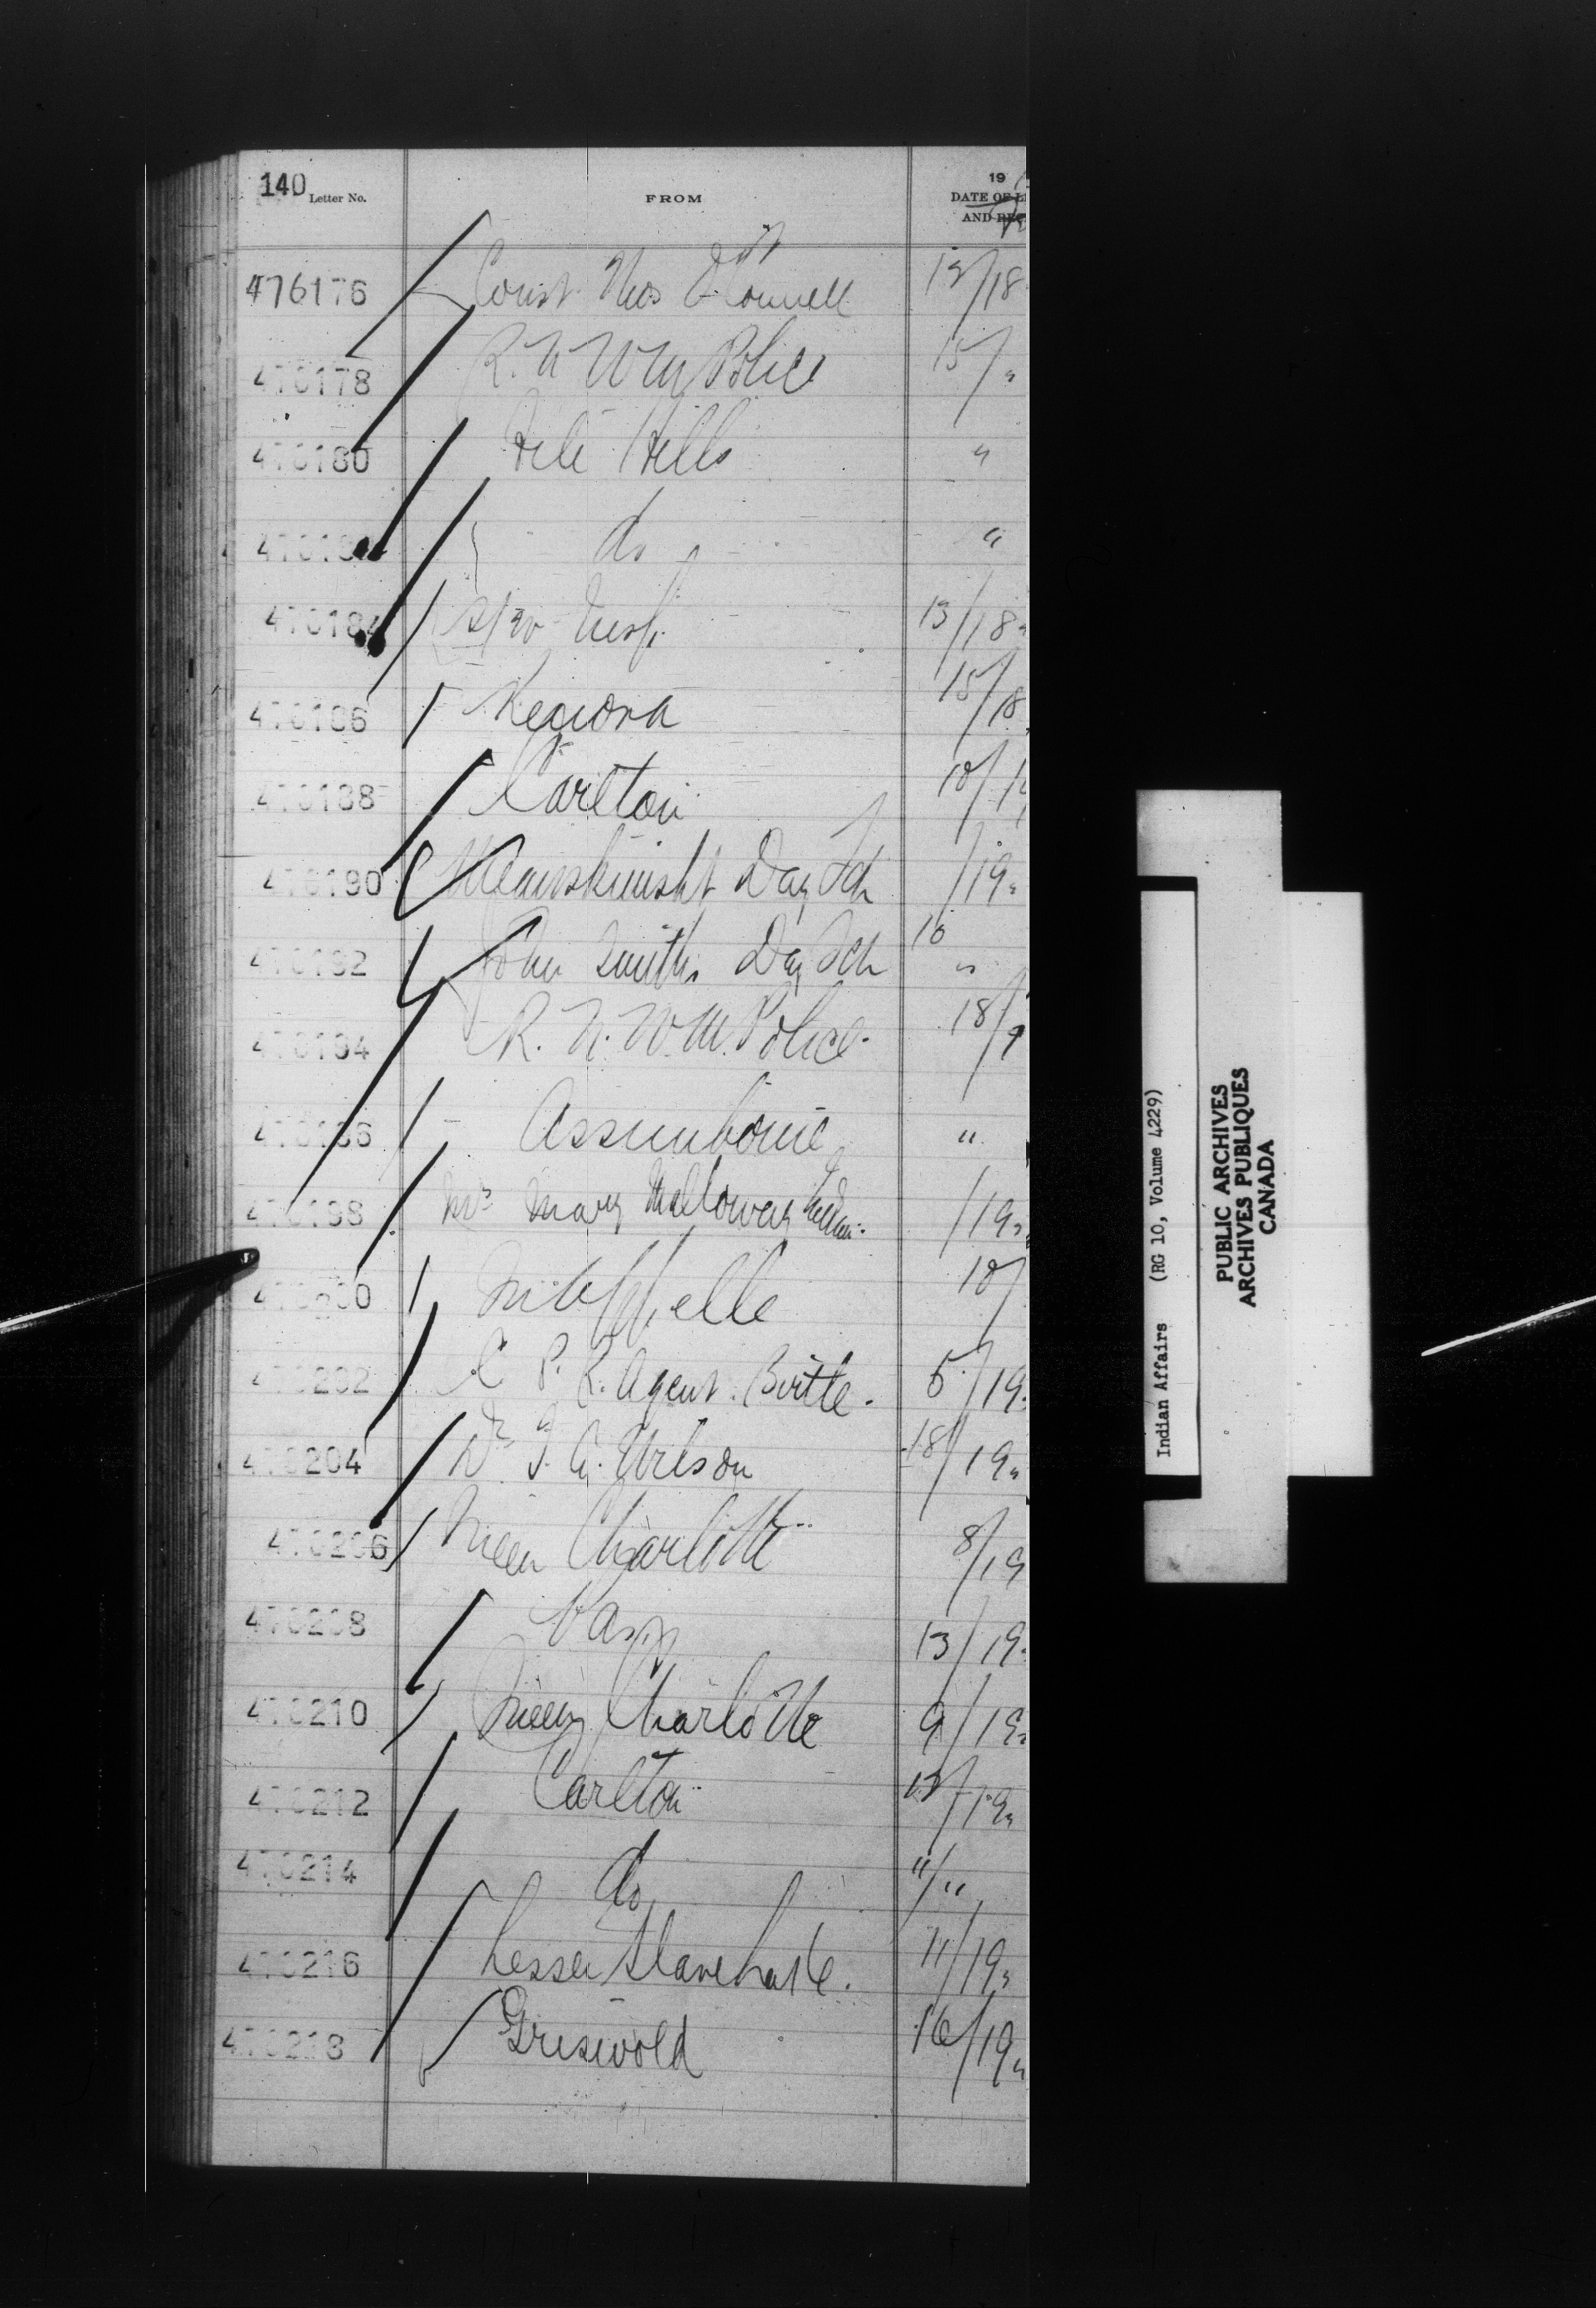 140 Letter No. FROM 19
DATE OF
AND REC
476176 Const. Thos O'Connell 12/18
470178 R. N. W. M. Police 15/"
470180 File Hills "
4701 do "
470184 13/18"
470186 Kenora 15/18
470188 Carlton 10/19
470190 Day Sch /19"
470192 John Smiths Day Sch 10 "
470194 R. N. W. M. Police 18/9
470196 Assiniboine "
470198 Mrs Mary /19"
470200 Qu'Appelle 10/
470202 C. P. R. Agent. Birtle. 5/19"
470204 Dr. Wilson 18/19"
470206 Queen Charlotte 8/19
470208 13/19"
470210 Queen Charlotte 9/19"
470212 Carlton 12/19"
470214 do "/"
470216 Lesser Slave Lake. 11/19"
470218 Griswold 16/19"
Indian Affairs (RG 10, Volume 4229)
PUBLIC ARCHIVES
ARCHIVES PUBLIQUES
CANADA